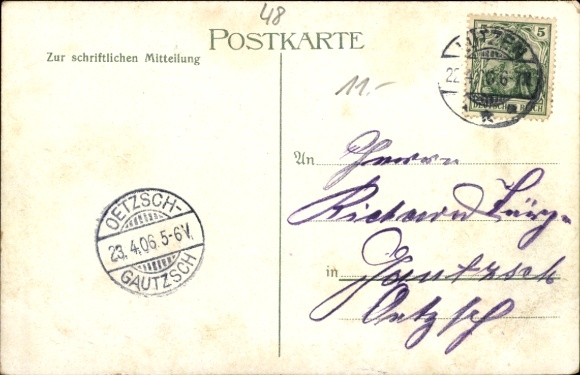 48
POSTKARTE
Zur schriftlichen Mitteilung
11.-
5 5
DEUTSCHES REICH
LÜTZEN
22.4.06 6-7N
An Herrn
Richard
in Gautzsch
Oetzsch
OETZSCH-
23.4.06.5-6V.
GAUTZSCH